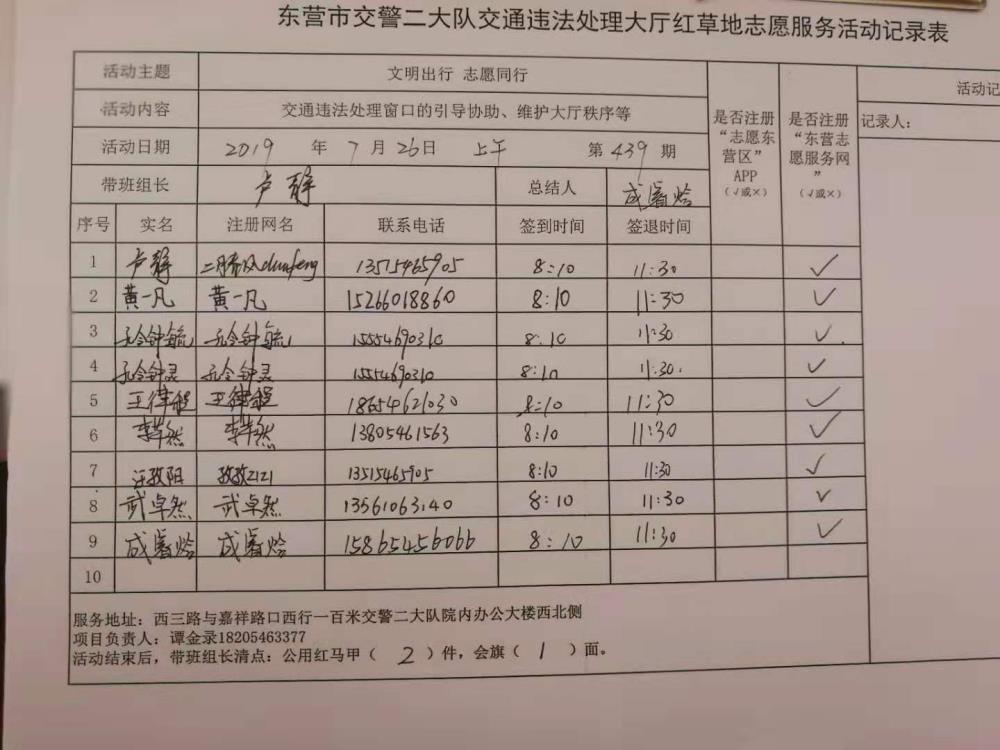 东营市交警二大队交通违法处理大厅红草地志愿服务活动记录表
活动主题 文明出行 志愿同行 是否注册“志愿东营区”APP(√或×) 是否注册“东营志愿服务网”(√或×) 活动记
活动内容 交通违法处理窗口的引导协助、维护大厅秩序等 记录人:
活动日期 2019 年 7 月 26 日 上午 第 439 期
带班组长 卢静 总结人 成睿焓
序号 实名 注册网名 联系电话 签到时间 签退时间
1 卢静 二月春风chunfeng 13515465905 8:10 11:30 √
2 黄一凡 黄一凡 15266018860 8:10 11:30 √
3 孔令钟毓 孔令钟毓 15554690310 8:10 11:30 √
4 孔令钟灵 孔令钟灵 15554690310 8:10 11:30 √
5 王律程 王律程 18654621030 8:10 11:30 √
6 李芊然 李芊然 13805461563 8:10 11:30 √
7 汪孜阳 孜孜2121 13515465905 8:10 11:30 √
8 武卓然 武卓然 13561063140 8:10 11:30 √
9 成睿焓 成睿焓 15865456066 8:10 11:30 √
10
服务地址:西三路与嘉祥路口西行一百米交警二大队院内办公大楼西北侧
项目负责人:谭金录18205463377
活动结束后,带班组长清点:公用红马甲( 2 )件,会旗( 1 )面。